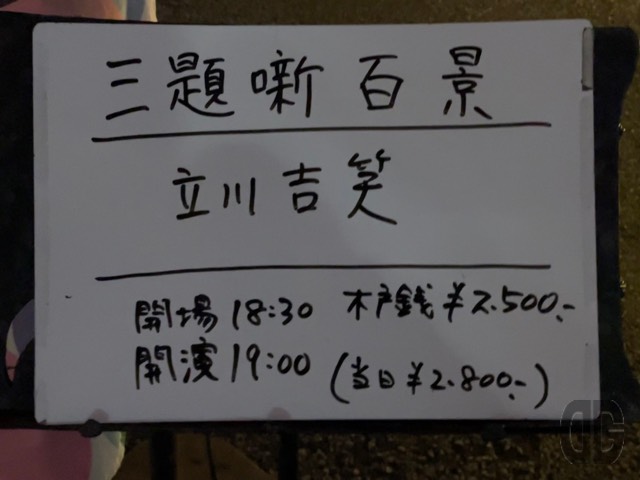 三題噺百景
立川吉笑
開場 18:30 木戸銭 ¥2.500.-
開演 19:00 (当日 ¥2.800.-)